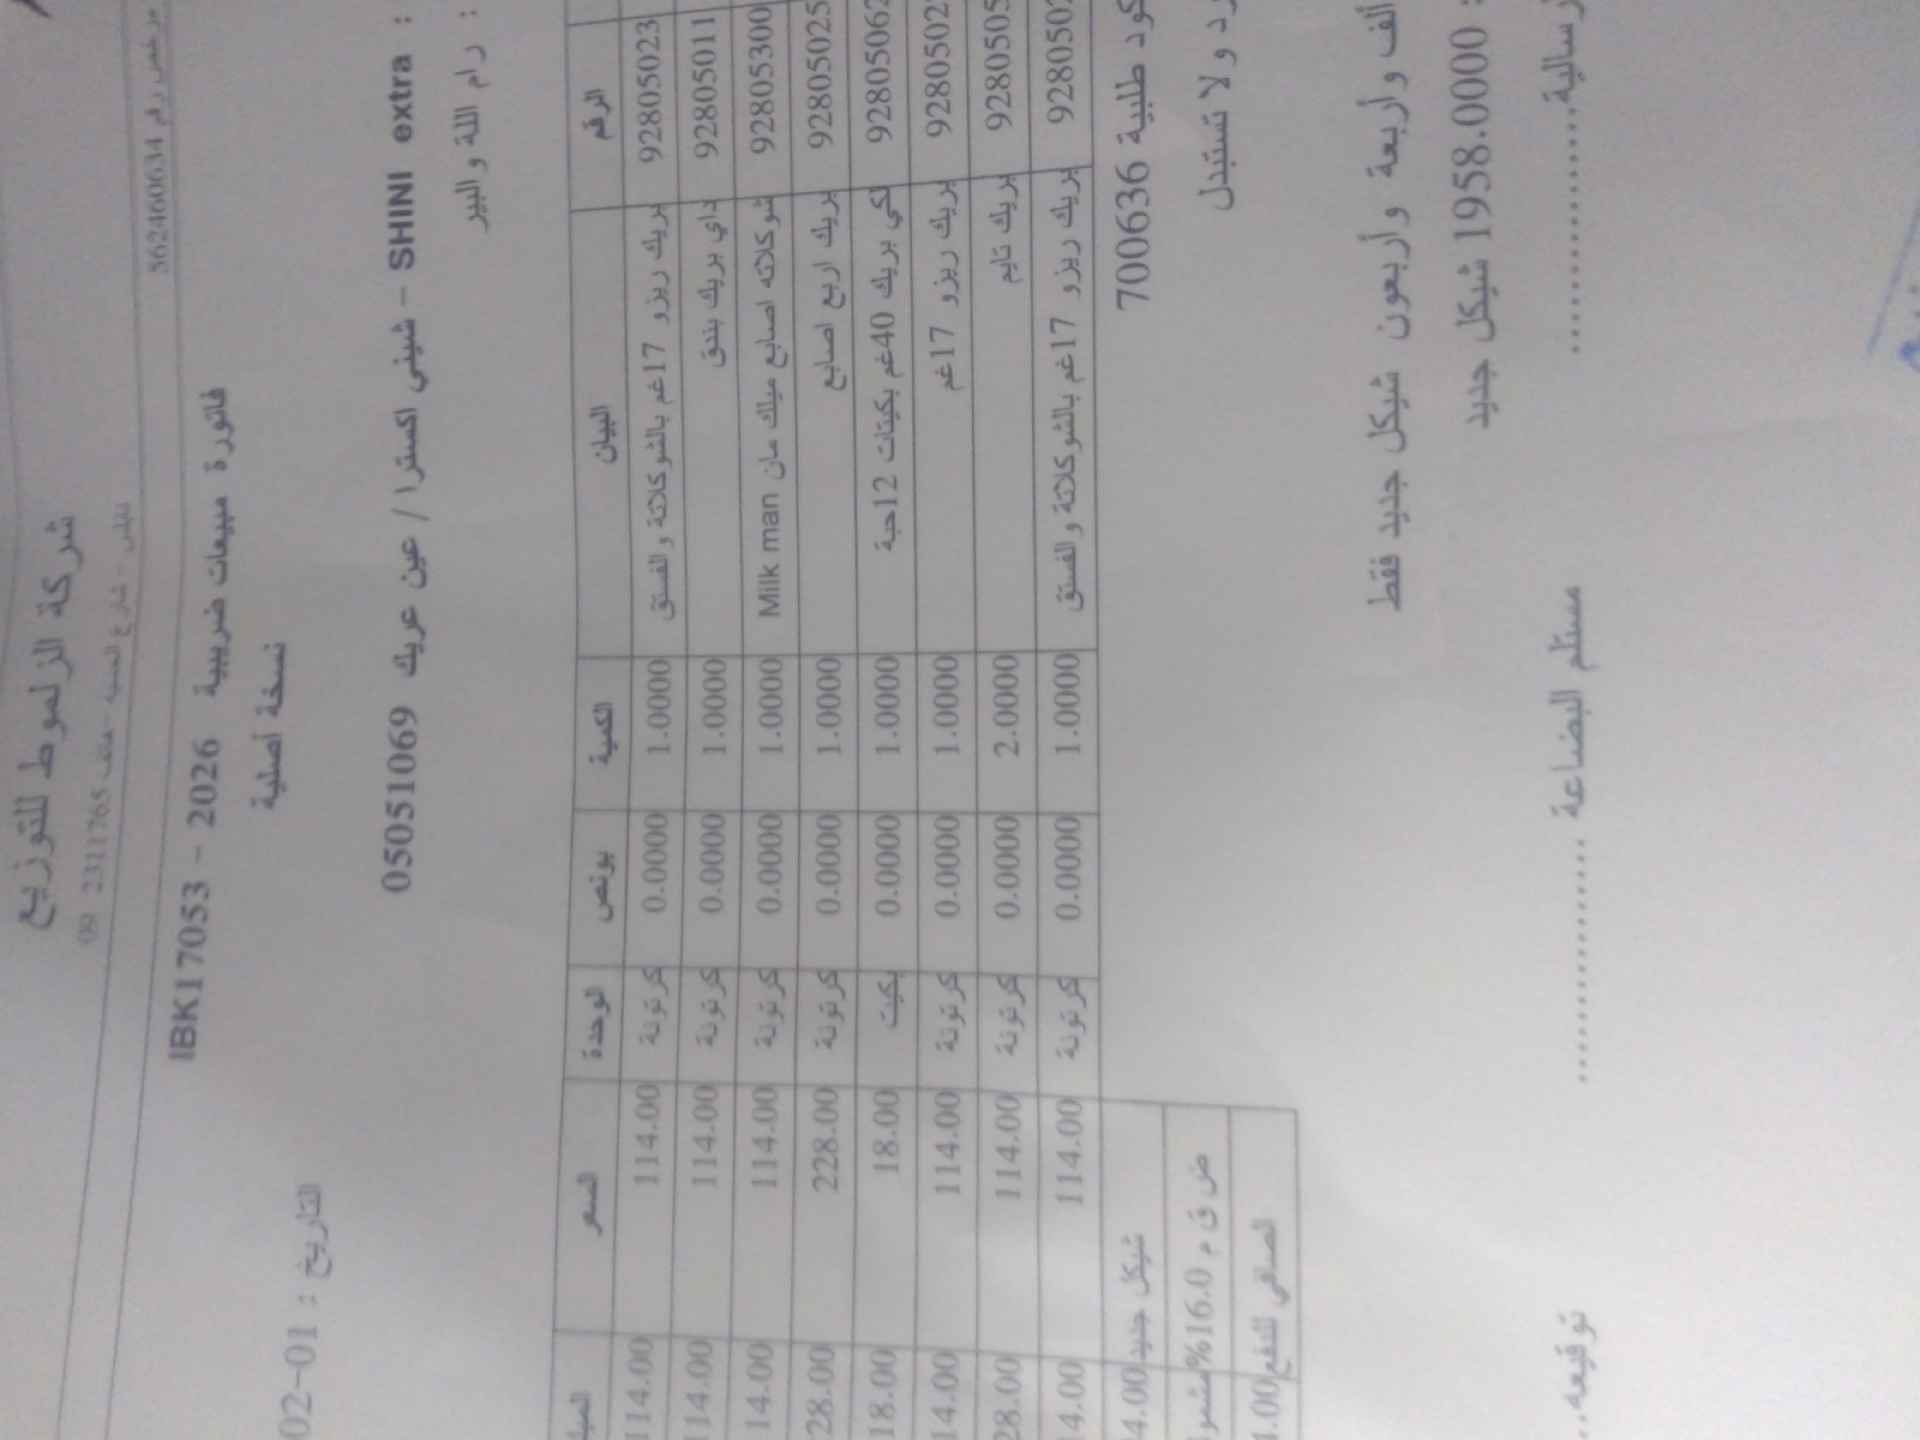 شركة الزلموط للتوزيع
09 2311765
مرخص رقم 562460634
فاتورة مبيعات ضريبية IBK17053 - 2026
نسخة أصلية
التاريخ : 01-02
: SHINI extra - شيني اكسترا / عين عريك 05051069
: رام الله والبير
الرقم البيان الكمية بونص الوحدة السعر المبلغ
92805023 بريك ريزو 17غم بالشوكلاتة والفستق 1.0000 0.0000 كرتونة 114.00 114.00
92805011 داي بريك بندق 1.0000 0.0000 كرتونة 114.00 114.00
92805300 شوكلاته اصابع ميلك مان Milk man 1.0000 0.0000 كرتونة 114.00 14.00
92805025 بريك اربع اصابع 1.0000 0.0000 كرتونة 228.00 28.00
92805062 لكي بريك 40غم بكيتات 12حبة 1.0000 0.0000 بكيت 18.00 18.00
9280502 بريك ريزو 17غم 1.0000 0.0000 كرتونة 114.00 14.00
9280505 بريك تايم 2.0000 0.0000 كرتونة 114.00 28.00
9280502 بريك ريزو 17غم بالشوكلاتة والفستق 1.0000 0.0000 كرتونة 114.00 14.00
كود طلبية 700636
شيكل جديد 4.00
رد ولا تستبدل
ض ق م 16.0%
الصافي للدفع 4.00
ألف وأربعة وأربعون شيكل جديد فقط
: 1958.0000 شيكل جديد
رسالية............ مستلم البضاعة ............ توقيعه..